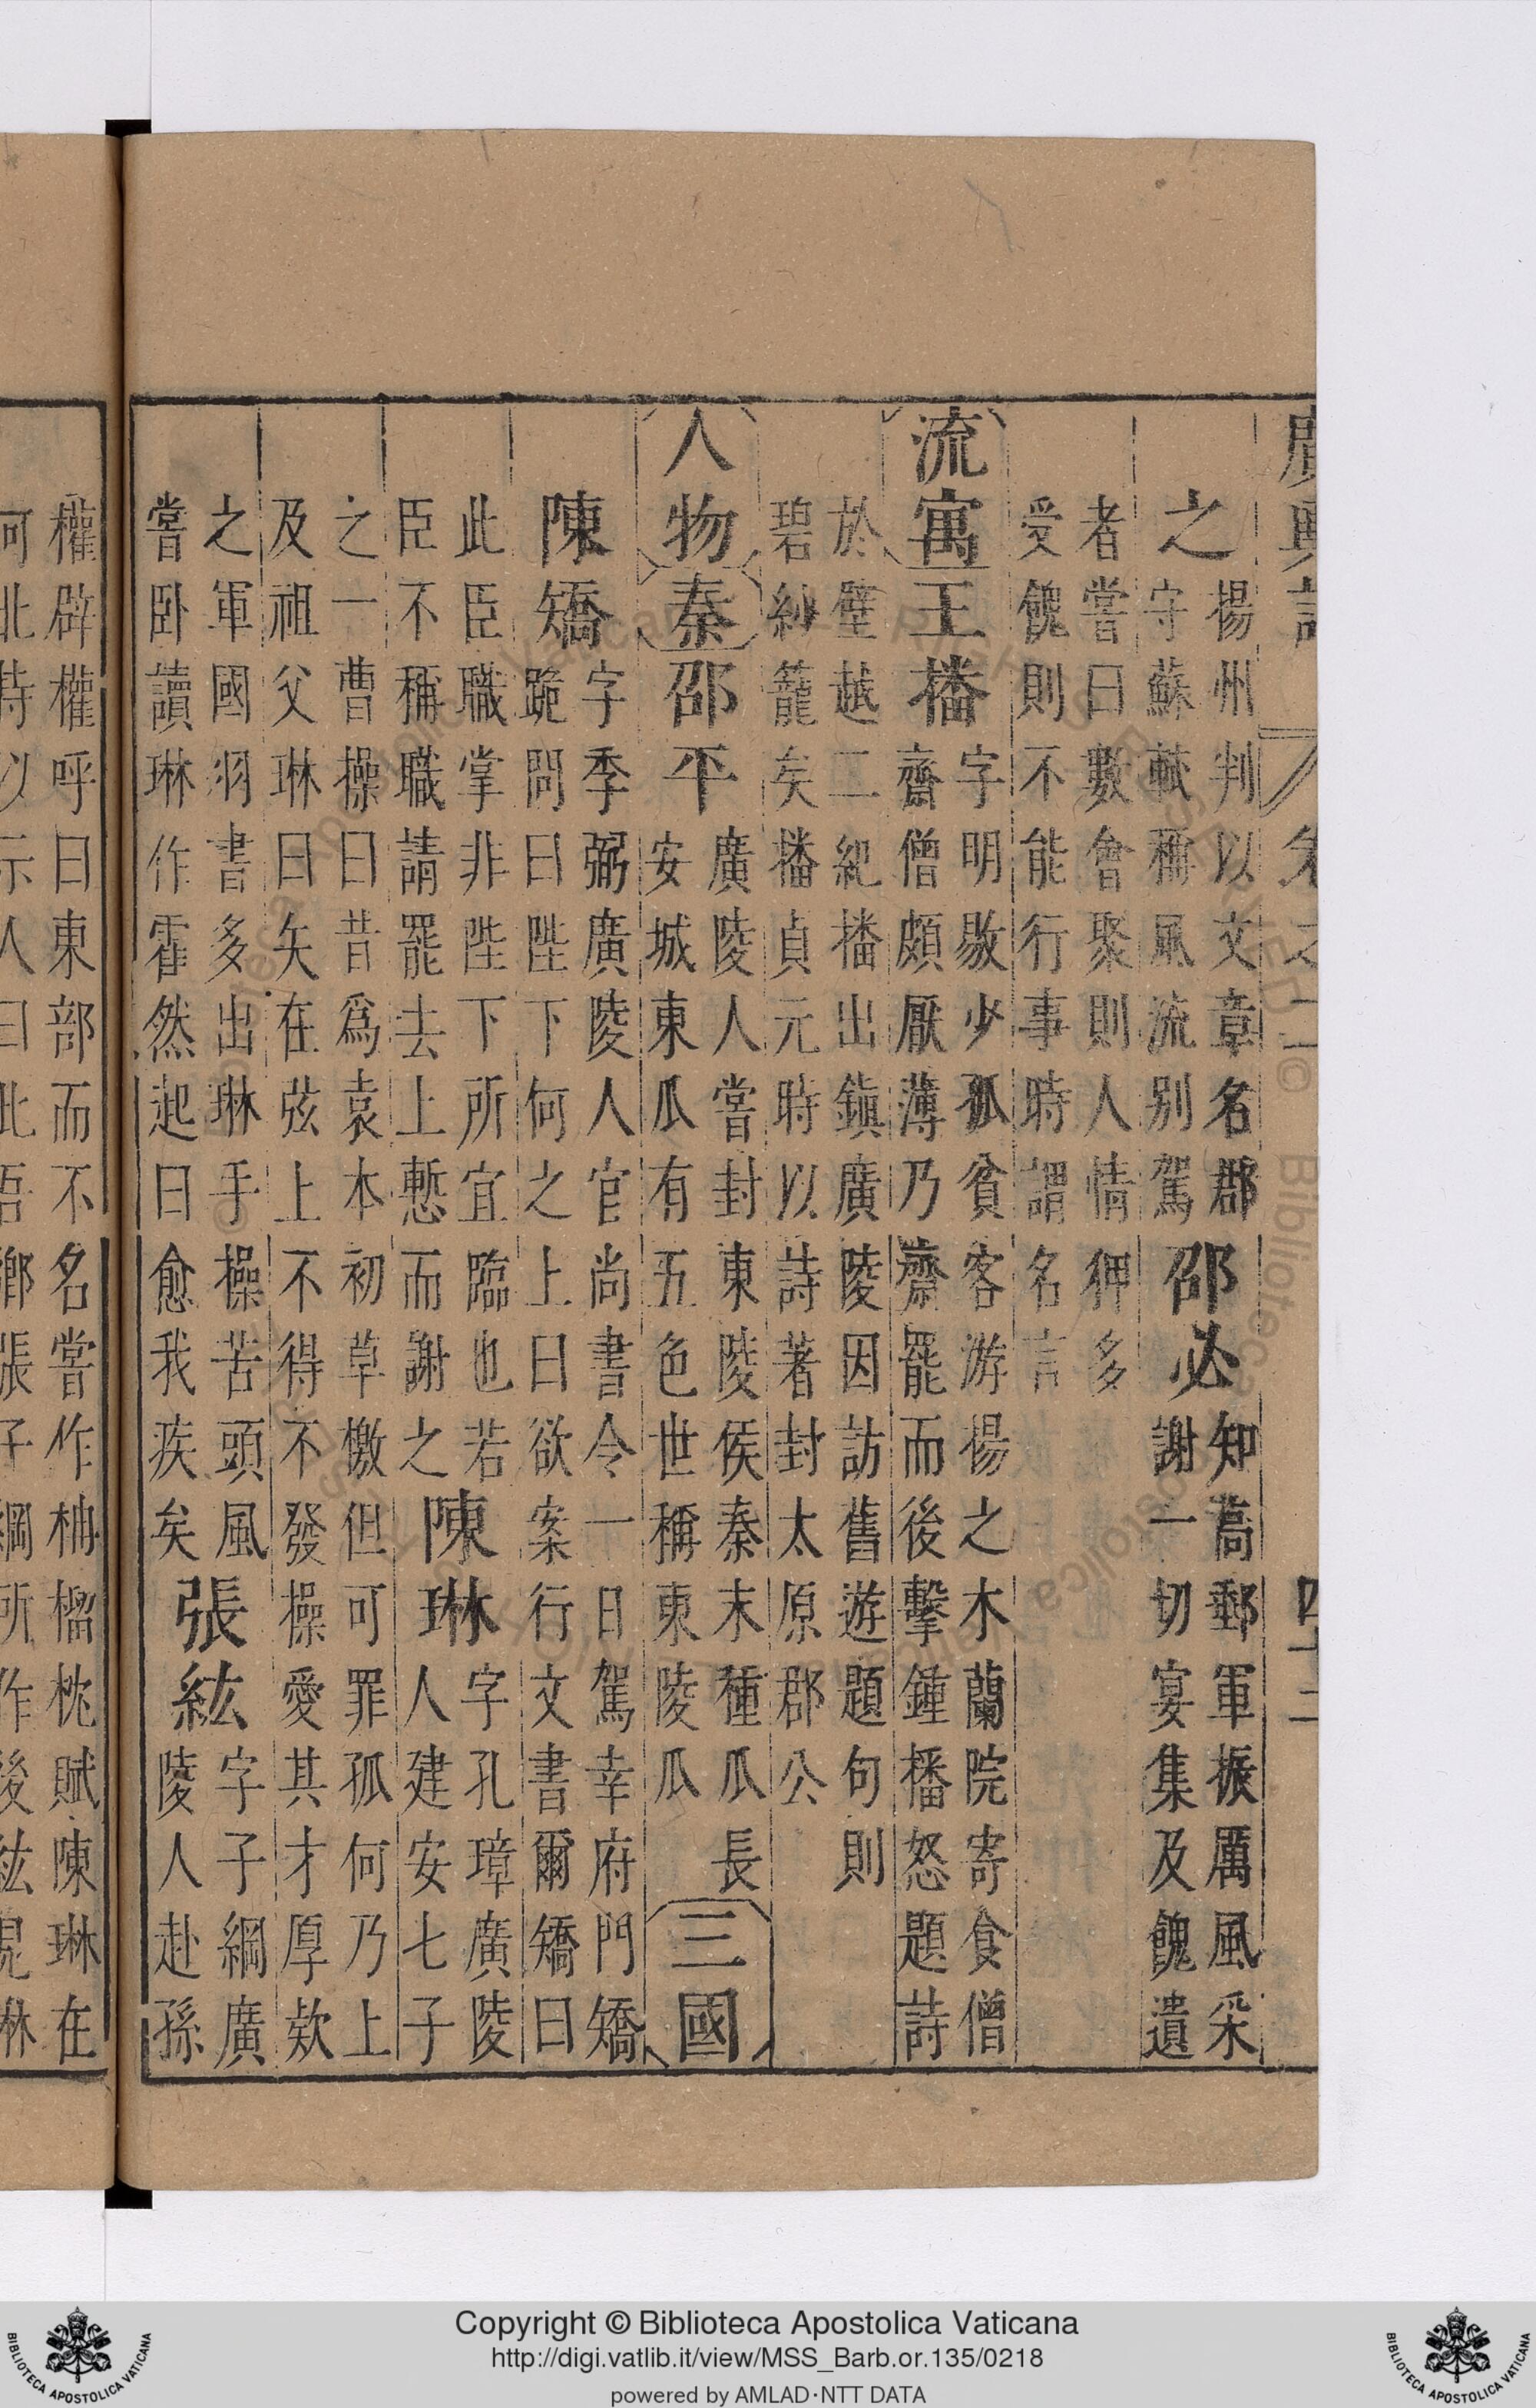 廣輿記
卷之二
四十三
之
揚州判以文章名郡
守蘇軾稱風流別駕
邵必
知高郵軍振厲風采
謝一切宴集及餽遺
者嘗曰數會聚則人情狎多
受餽則不能行事時謂名言
流寓
王播
字明敭少孤貧客游揚之木蘭院寄食僧
齋僧頗厭薄乃齋罷而後擊鍾播怒題詩
於壁越二紀播出鎮廣陵因訪舊遊題句則
碧紗籠矣播貞元時以詩著封太原郡公
人物
秦
邵平
廣陵人嘗封東陵侯秦末種瓜長
安城東瓜有五色世稱東陵瓜
三國
陳矯
字季弼廣陵人官尚書令一日駕幸府門矯
跪問曰陛下何之上曰欲案行文書爾矯曰
此臣職掌非陛下所宜臨也若
臣不稱職請罷去上慙而謝之
陳琳
字孔璋廣陵
人建安七子
之一曹操曰昔為袁本初草檄但可罪孤何乃上
及祖父琳曰矢在弦上不得不發操愛其才厚欸
之軍國羽書多出琳手操苦頭風
嘗卧讀琳作霍然起曰愈我疾矣
張紘
字子綱廣
陵人赴孫
權辟權呼曰東部而不名嘗作柟榴枕賦陳琳在
河北持以示人曰此吾鄉張子綱所作後紘見琳
Copyright © Biblioteca Apostolica Vaticana
http://digi.vatlib.it/view/MSS_Barb.or.135/0218
powered by AMLAD·NTT DATA
BIBLIOTECA APOSTOLICA VATICANA
BIBLIOTECA APOSTOLICA VATICANA